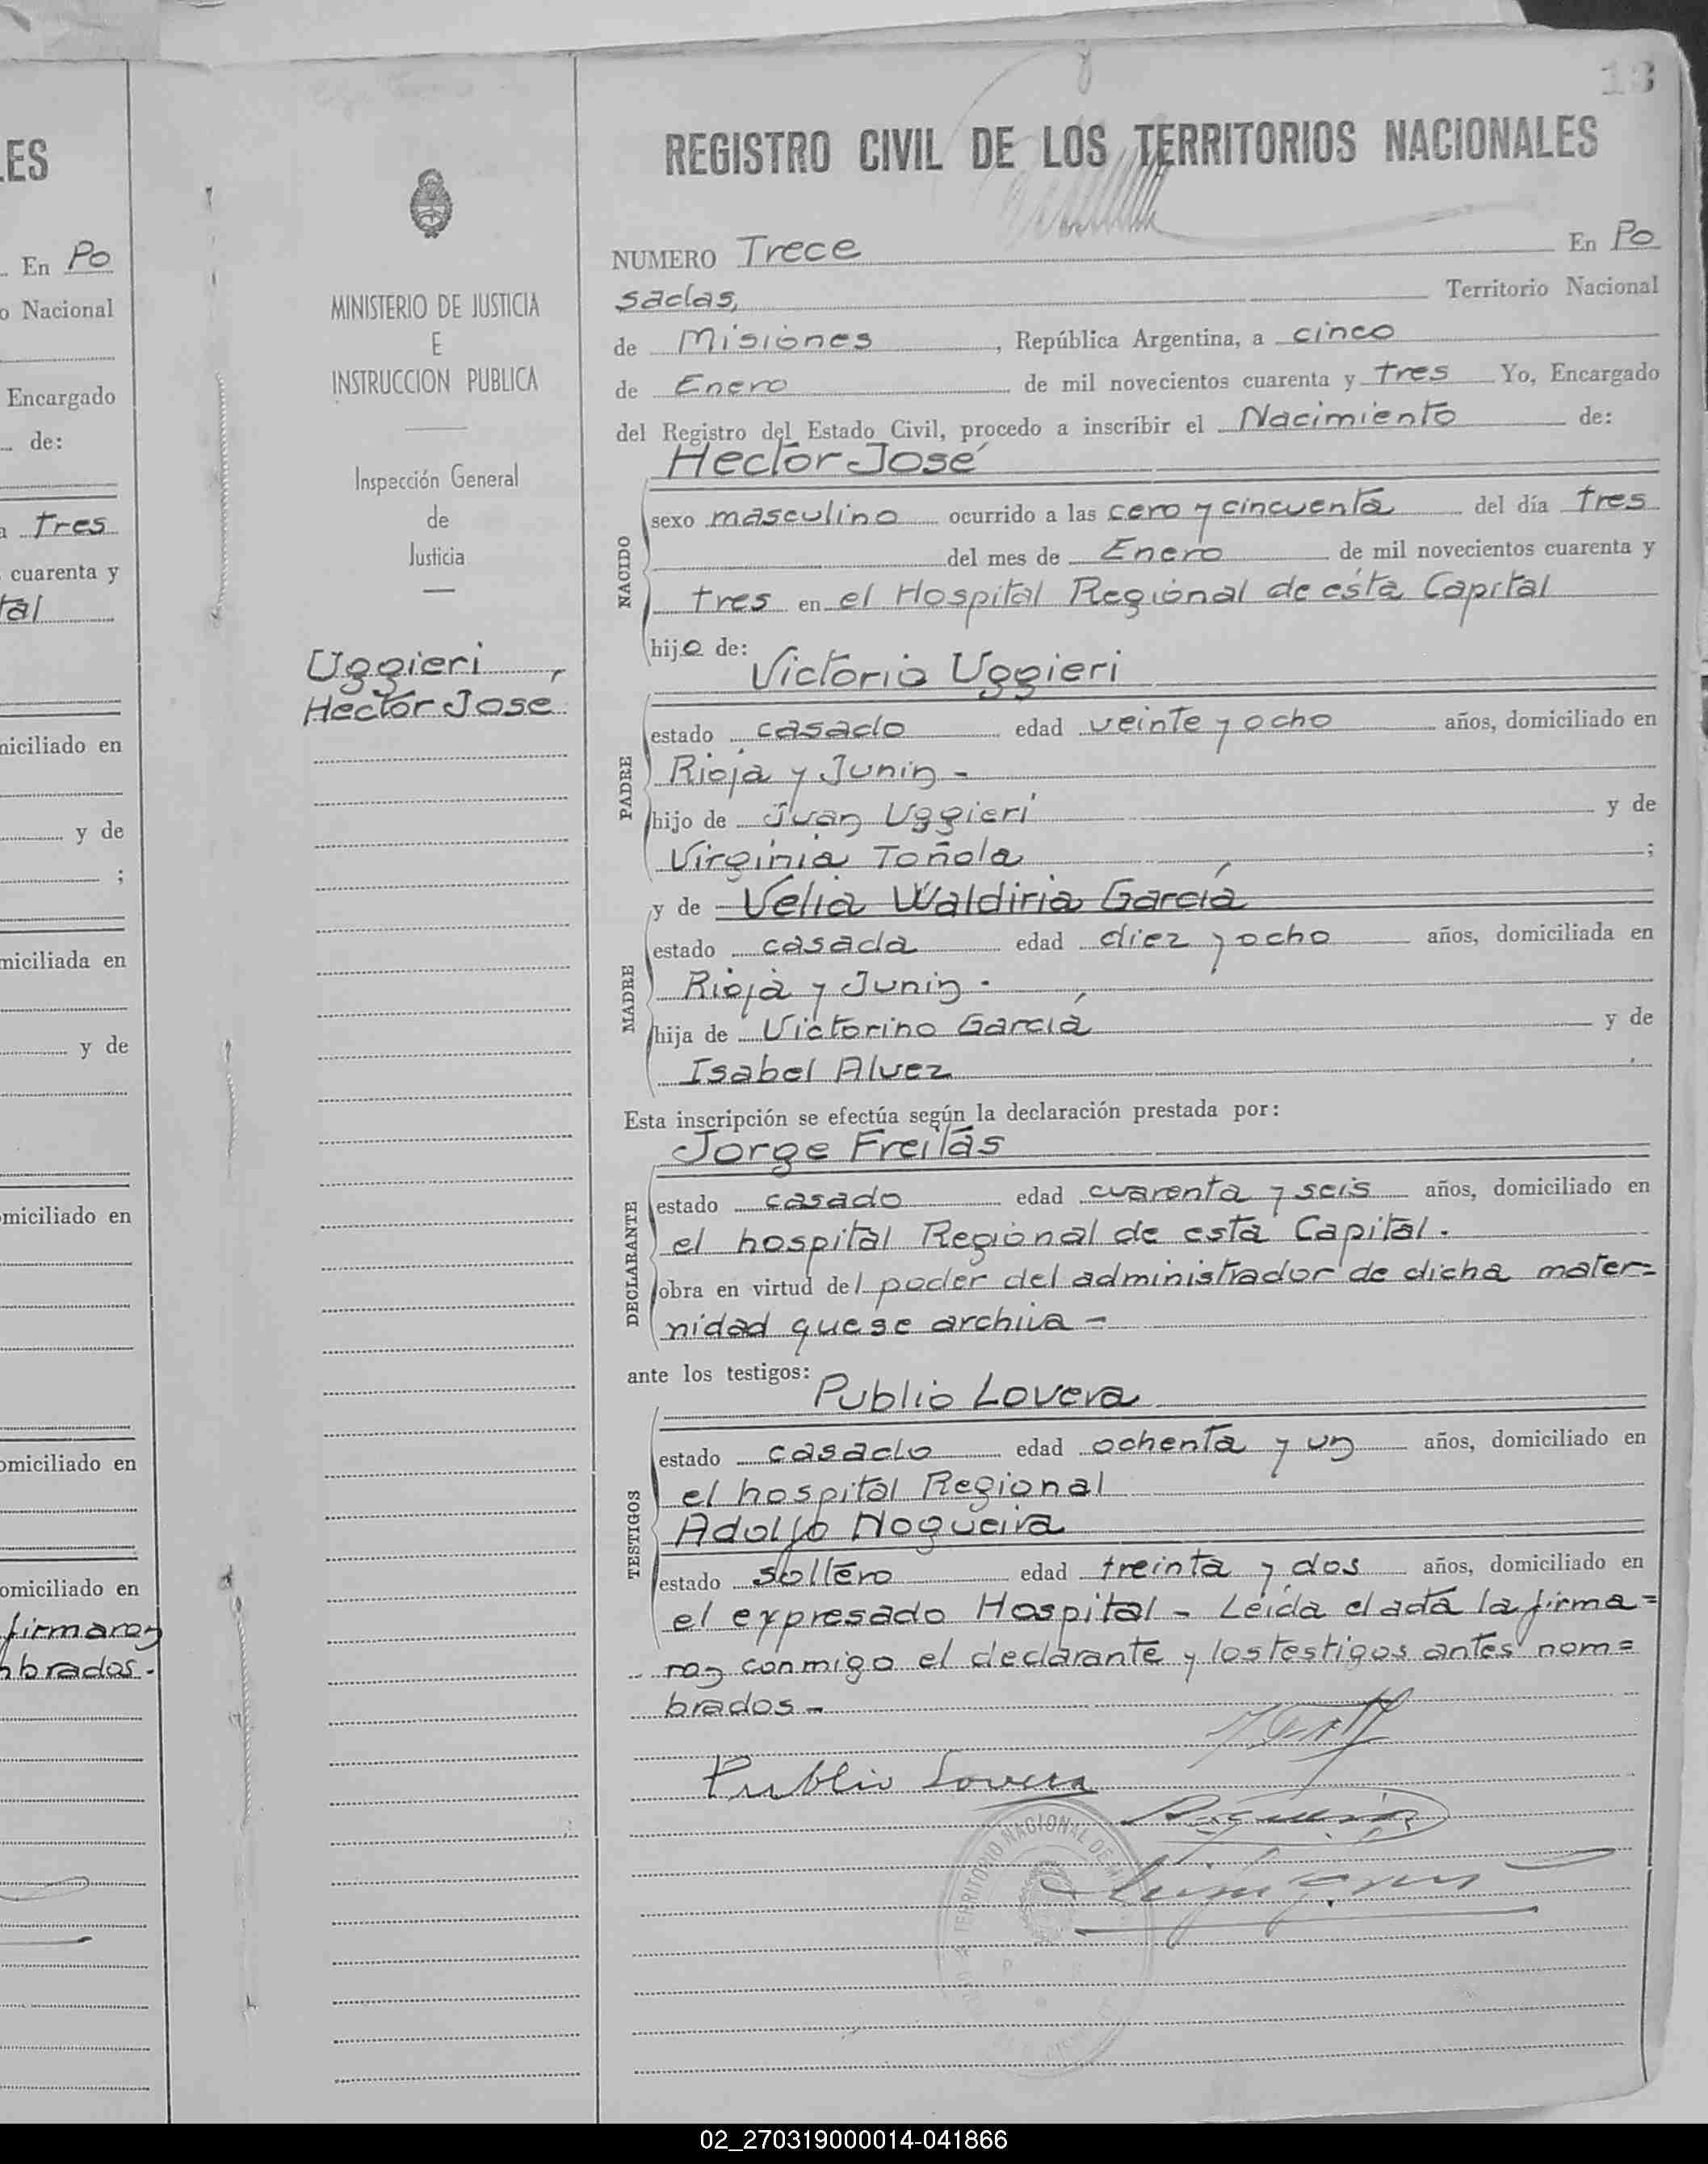 13
REGISTRO CIVIL DE LOS TERRITORIOS NACIONALES
NUMERO Trece En Po
sadas, Territorio Nacional
de Misiones, República Argentina, a cinco
de Enero de mil novecientos cuarenta y tres Yo, Encargado
del Registro del Estado Civil, procedo a inscribir el Nacimiento de:
Hector José
NACIDO
sexo masculino ocurrido a las cero y cincuenta del día tres
del mes de Enero de mil novecientos cuarenta y
tres en el Hospital Regional de esta Capital
hijo de:
Victorio Uggieri
PADRE
estado casado edad veinte y ocho años, domiciliado en
Rioja y Junin -
hijo de Juan Uggieri y de
Virginia Toñola ;
y de Velia Waldiria García
MADRE
estado casada edad diez y ocho años, domiciliada en
Rioja y Junin.
hija de Victorino García y de
Isabel Alvez
Esta inscripción se efectúa según la declaración prestada por:
Jorge Freitas
DECLARANTE
estado casado edad cuarenta y seis años, domiciliado en
el hospital Regional de esta Capital.
obra en virtud del poder del administrador de dicha mater=
nidad que se archiva -
ante los testigos:
Publio Lovera
TESTIGOS
estado casado edad ochenta y un años, domiciliado en
el hospital Regional
Adolfo Nogueira
estado soltero edad treinta y dos años, domiciliado en
el expresado Hospital - Leida el acta la firma=
ron conmigo el declarante y los testigos antes nom=
brados -
Publio Lovera
TERRITORIO NACIONAL DE
MINISTERIO DE JUSTICIA
E
INSTRUCCION PUBLICA
Inspección General
de
Justicia
Uggieri,
Hector Jose
LES
En Po
o Nacional
Encargado
de:
tres
cuarenta y
tal
miciliado en
y de
;
miciliada en
y de
omiciliado en
omiciliado en
omiciliado en
firmaron
mbrados.
02_270319000014-041866